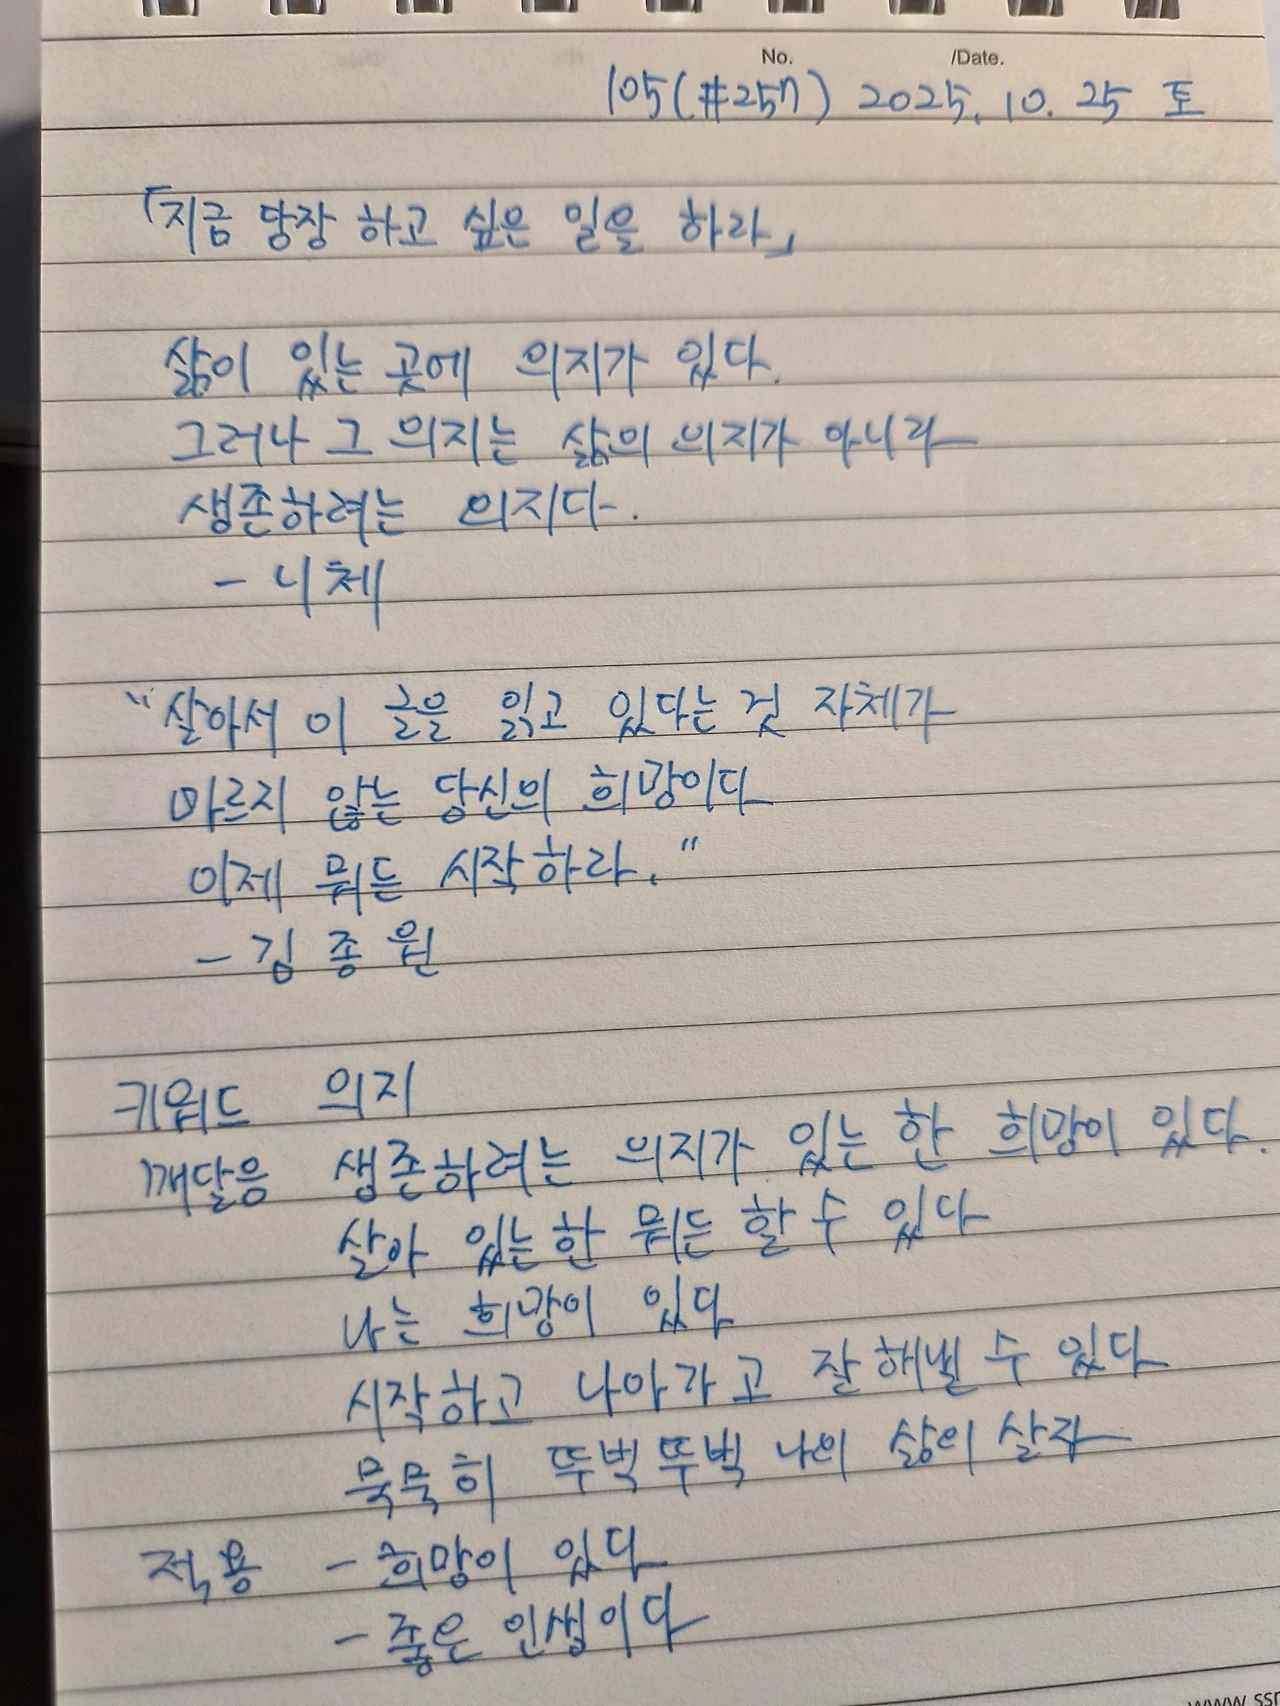 No. /Date.
105(#257) 2025. 10. 25 토
「지금 당장 하고 싶은 일을 하라」
삶이 있는 곳에 의지가 있다.
그러나 그 의지는 삶의 의지가 아니라
생존하려는 의지다.
- 니체
"살아서 이 글을 읽고 있다는 것 자체가
마르지 않는 당신의 희망이다
이제 뭐든 시작하라."
- 김종원
키워드 의지
깨달음 생존하려는 의지가 있는 한 희망이 있다.
살아 있는한 뭐든 할 수 있다
나는 희망이 있다
시작하고 나아가고 잘해낼 수 있다
묵묵히 뚜벅뚜벅 나의 삶의 살자
적용 - 희망이 있다
- 좋은 인생이다